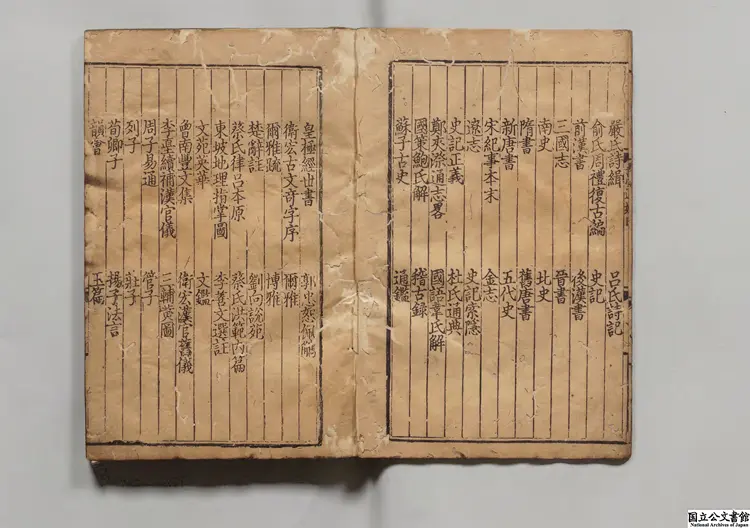 嚴氏詩緝 呂氏詩記
俞氏周禮復古編 史記
前漢書 後漢書
三國志 晉書
南史 北史
隋書 舊唐書
新唐書 五代史
宋紀事本末 金志
遼志 史記索隱
史記正義 杜氏通典
鄭夾漈通志畧 國語韋氏解
國策鮑氏解 稽古錄
蘇子古史 通鑑
皇極經世書 郭忠恕佩觿
衛宏古文奇字序 爾雅
爾雅疏 博雅
楚辭註 劉向說苑
蔡氏律呂本原 蔡氏洪範內篇
東坡地理指掌圖 李善文選註
文苑英華 文鑑
曾南豐文集 衛宏漢官舊儀
李熹續補漢官儀 三輔黃圖
周子易通 管子
列子 莊子
荀卿子 揚子法言
韻會 玉篇
国立公文書館
National Archives of Japan